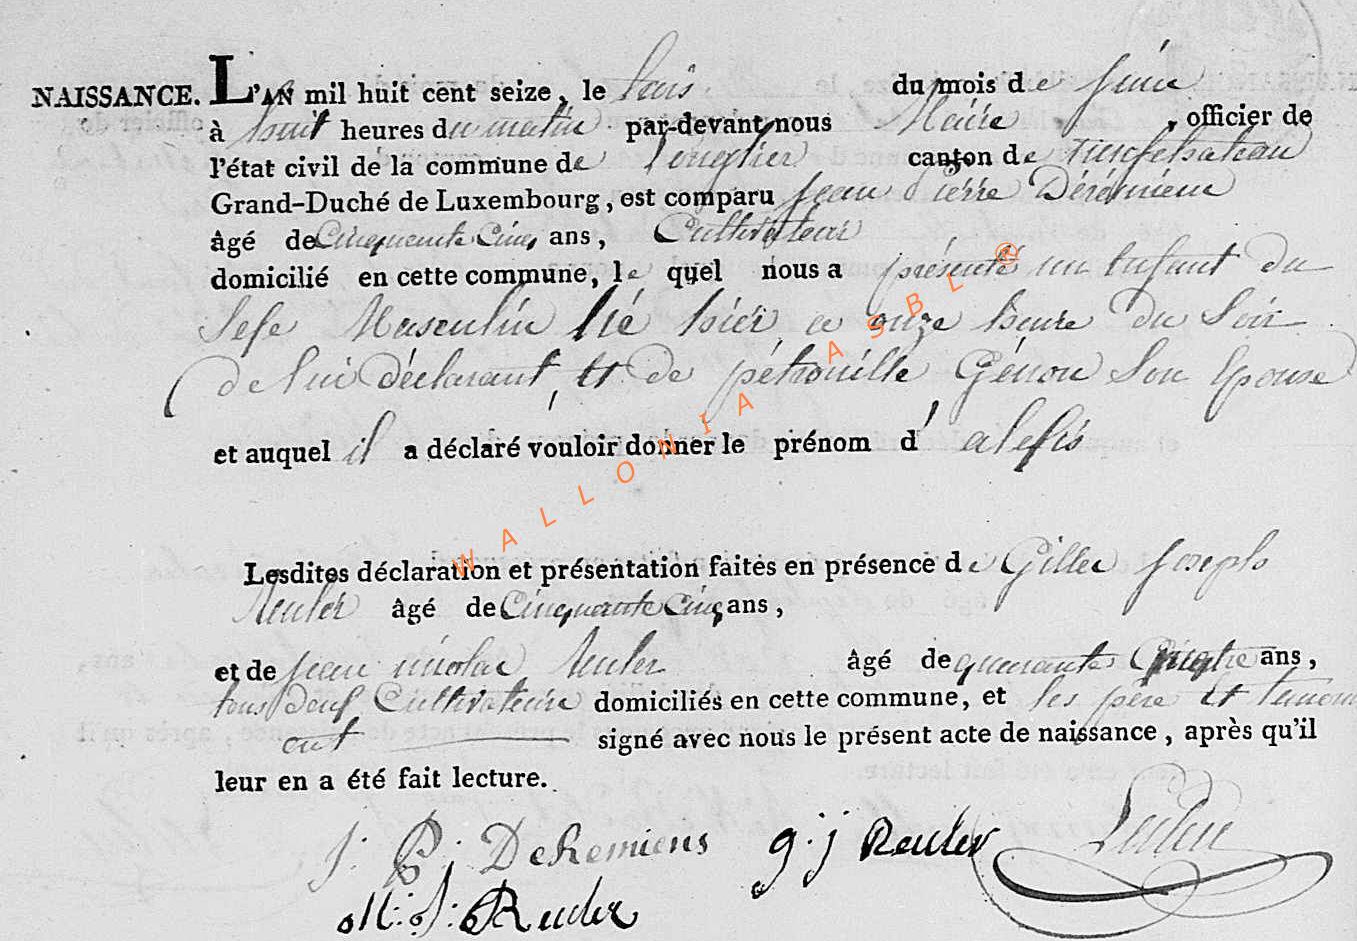 NAISSANCE. L'AN mil huit cent seize, le trois du mois de Juin
à huit heures du matin par-devant nous Maire, officier de
l'état civil de la commune de Longlier canton de neufchateau
Grand-Duché de Luxembourg, est comparu Jean Pierre Dérémiens
âgé de Cinquante Cinq ans, Cultivateur
domicilié en cette commune, le quel nous a présenté un Enfant du
Sexe Masculin né hier a onze heure du Soir
de lui déclarant, et de pétronille Génon Son Epouse
et auquel il a déclaré vouloir donner le prénom d'alexis
Lesdites déclaration et présentation faites en présence de Gille Joseph
Reuler âgé de Cinquante Cinq ans,
et de Jean nicolas Reuler âgé de quarante ans,
tous deux Cultivateurs domiciliés en cette commune, et les père et temoins
ont signé avec nous le présent acte de naissance, après qu'il
leur en a été fait lecture.
J: P: DeRemiens g:j Reuler
Reuler
WALLONIA ASBL ®